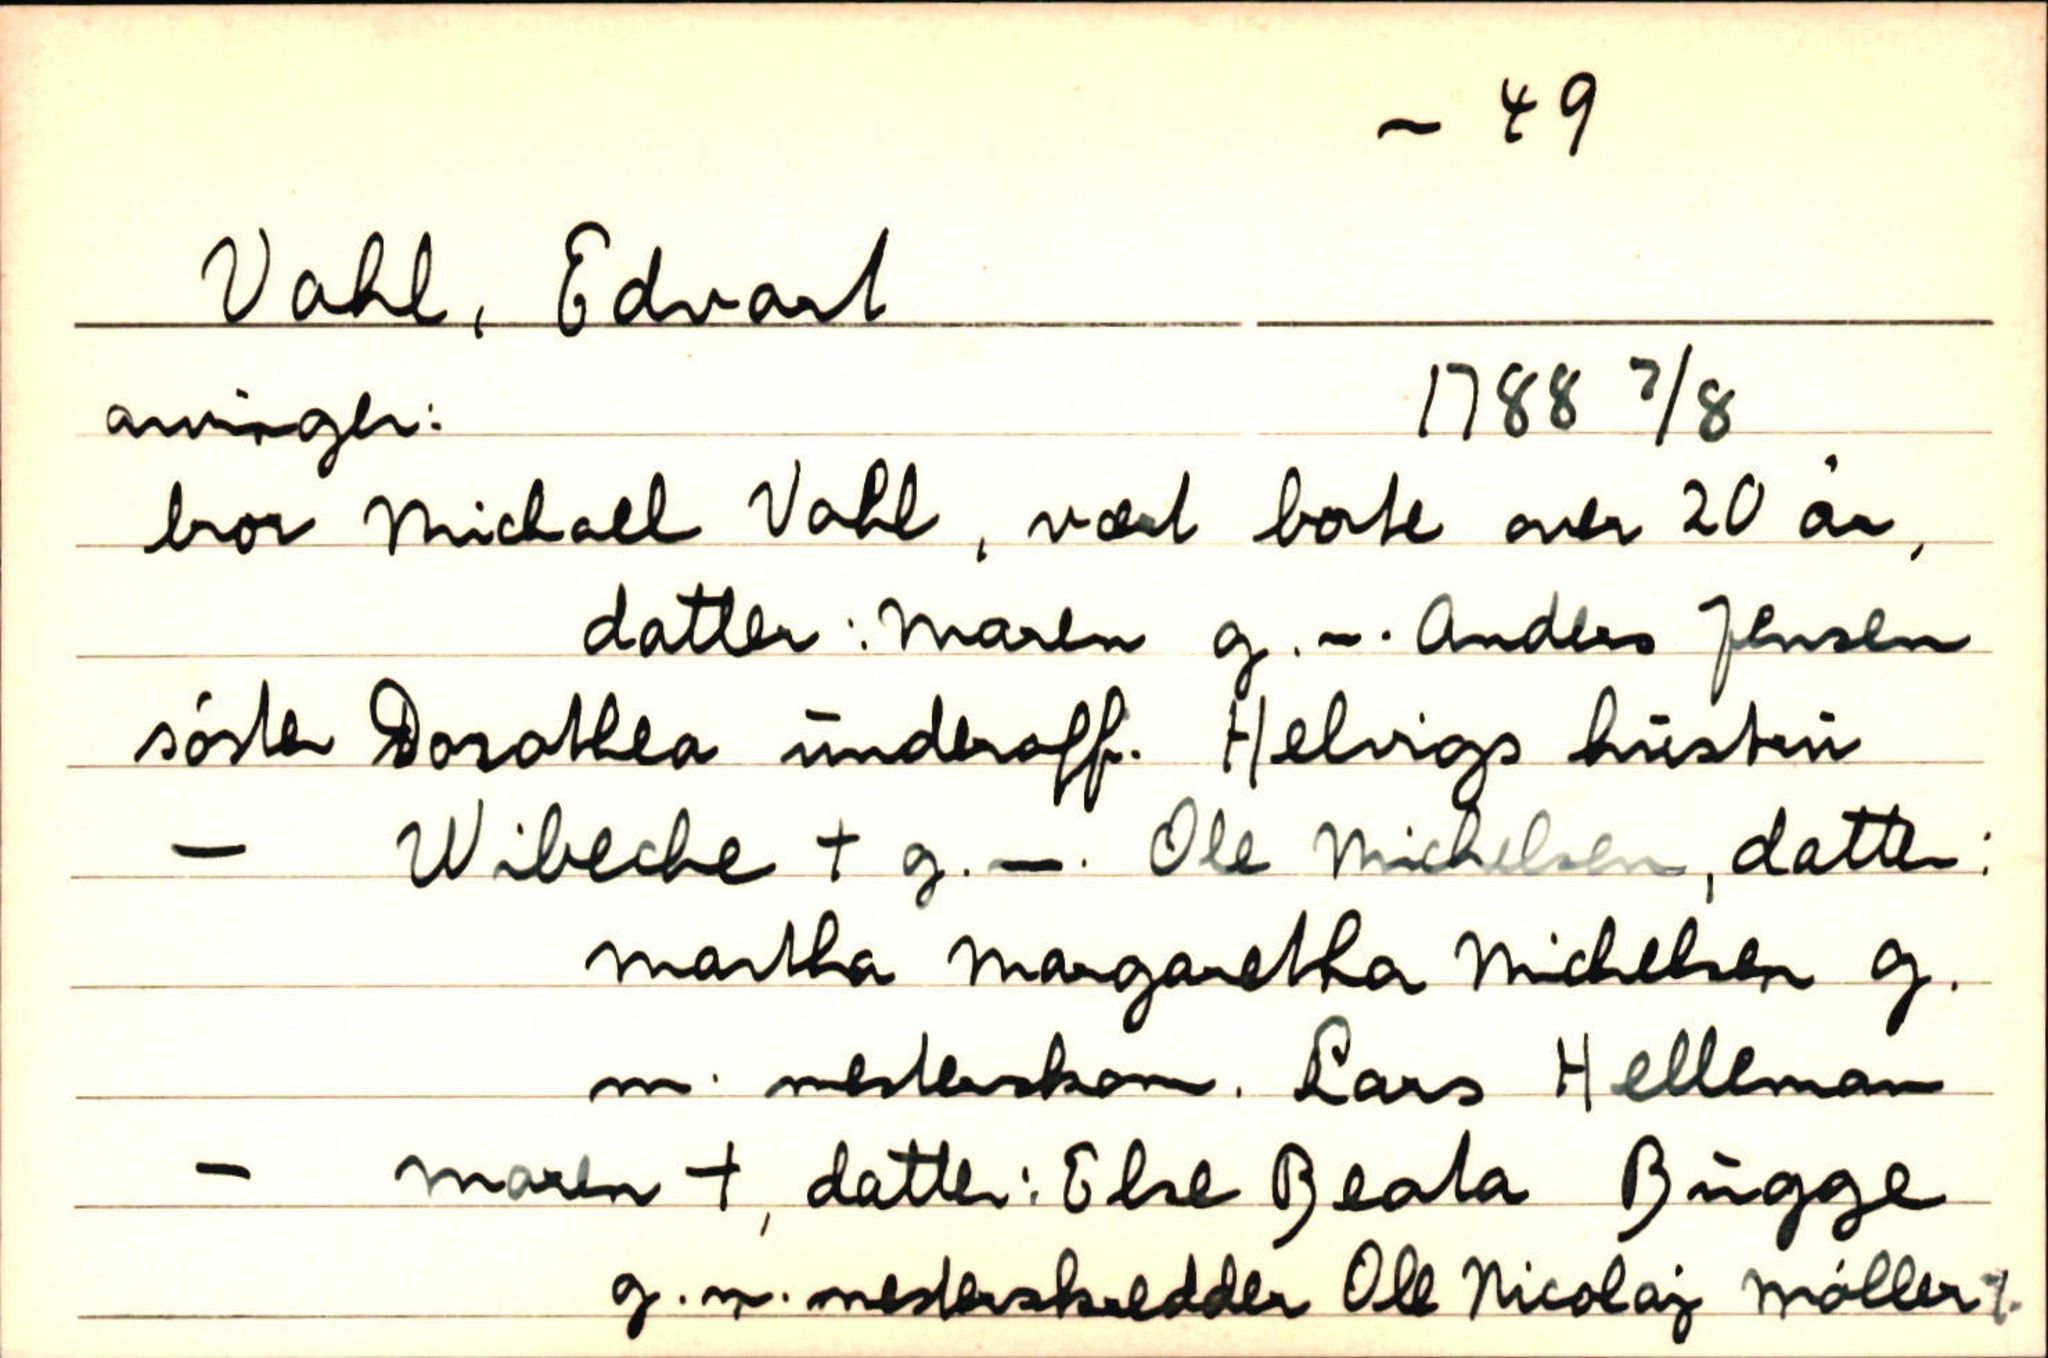 ~ 49
Vahl, Edvart
arvinger: 1788 7/8
bror Michael Vahl, vært borte over 20 år,
datter: Maren g. ~. Anders Jensen
söster Dorothea underoff. Helvigs hustru
— Wibeche + g. —. Ole Michelsen, datter:
Martha Margaretha Michelsen g.
m. mesterskom. Lars Helleman
— Maren +, datter: Else Beata Bugge
g. m. mesterskredder Ole Nicolaj Möller